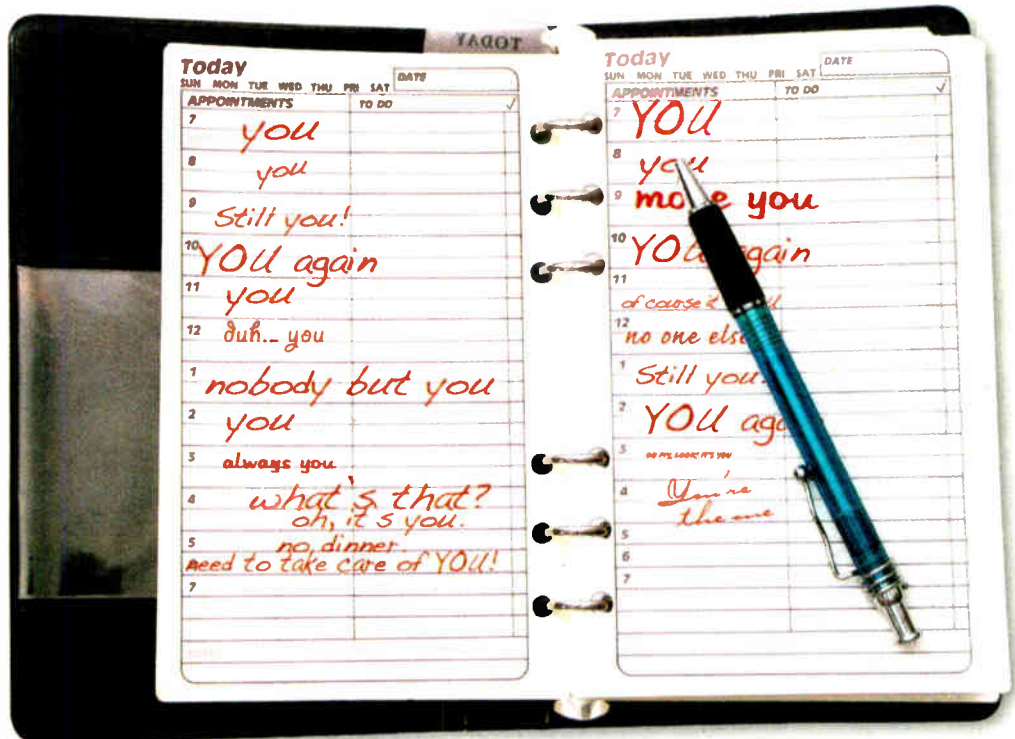 TODAY
Today
SUN MON TUE WED THU FRI SAT
DATE
APPOINTMENTS
TO DO
7
you
8
you
9
Still you!
10
YOU again
11
you
12
duh... you
1
nobody but you
2
you
3
always you
4
what's that?
oh, it's you.
5
no, dinner.
need to take care of YOU!
7
Today
SUN MON TUE WED THU FRI SAT
DATE
APPOINTMENTS
TO DO
7
YOU
8
you
9
more you
10
YOU again
11
of course it
12
no one else
1
Still you
2
YOU aga
3
OH MY, LOOK! IT'S YOU
4
You're
the one
5
6
7